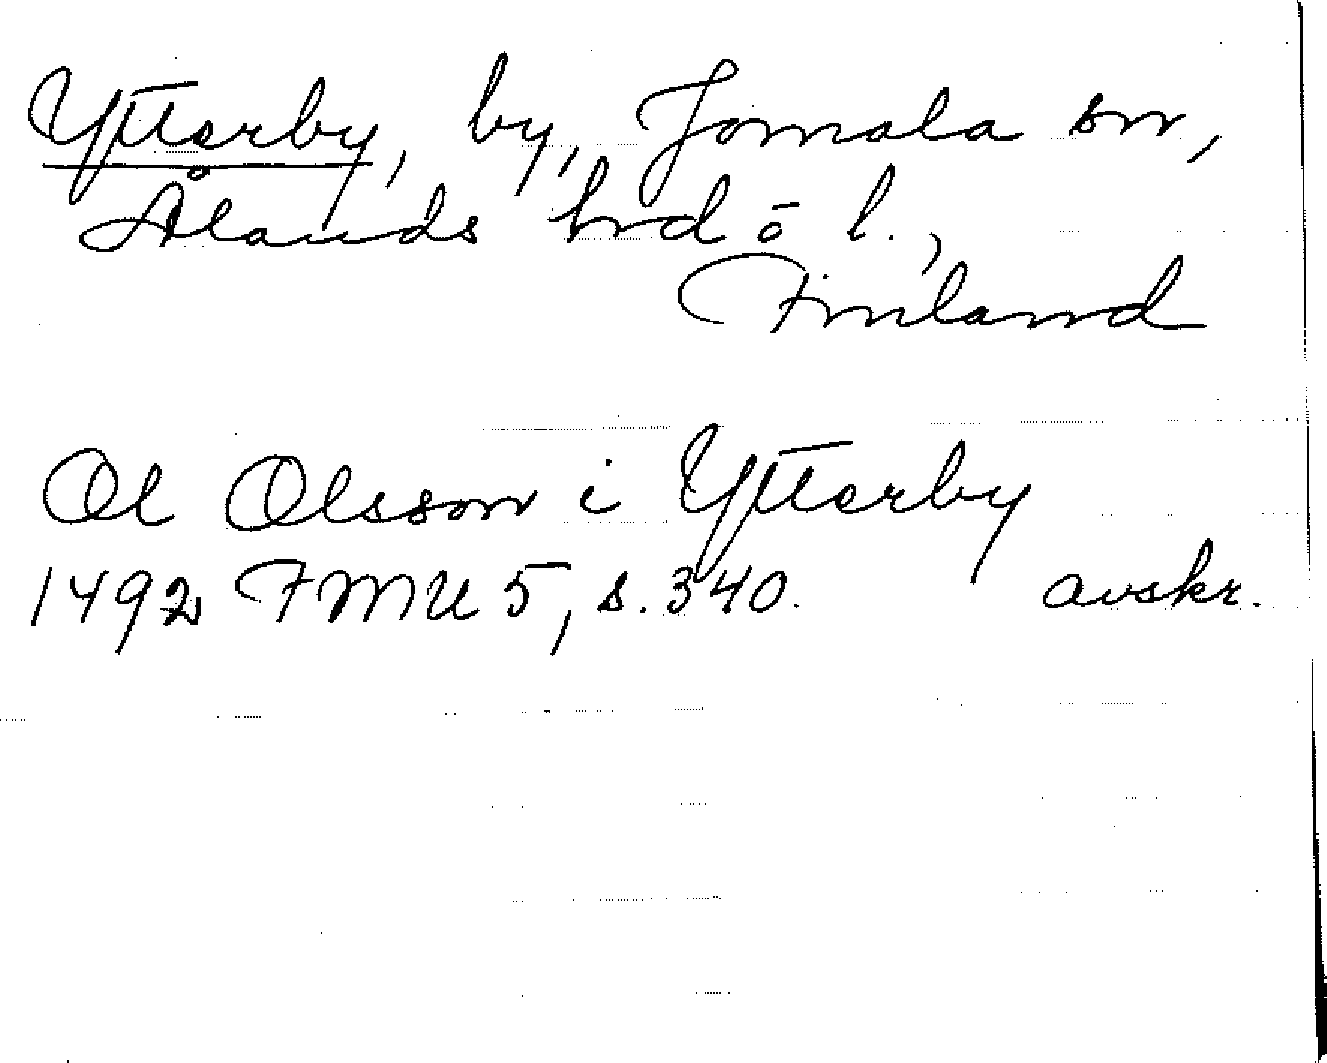 Ytterby, by, Jomala sn,
Ålands hrd ō l.,
Finland
Ol Olsson i Ytterby
1492 FMU 5, s. 340. avskr.